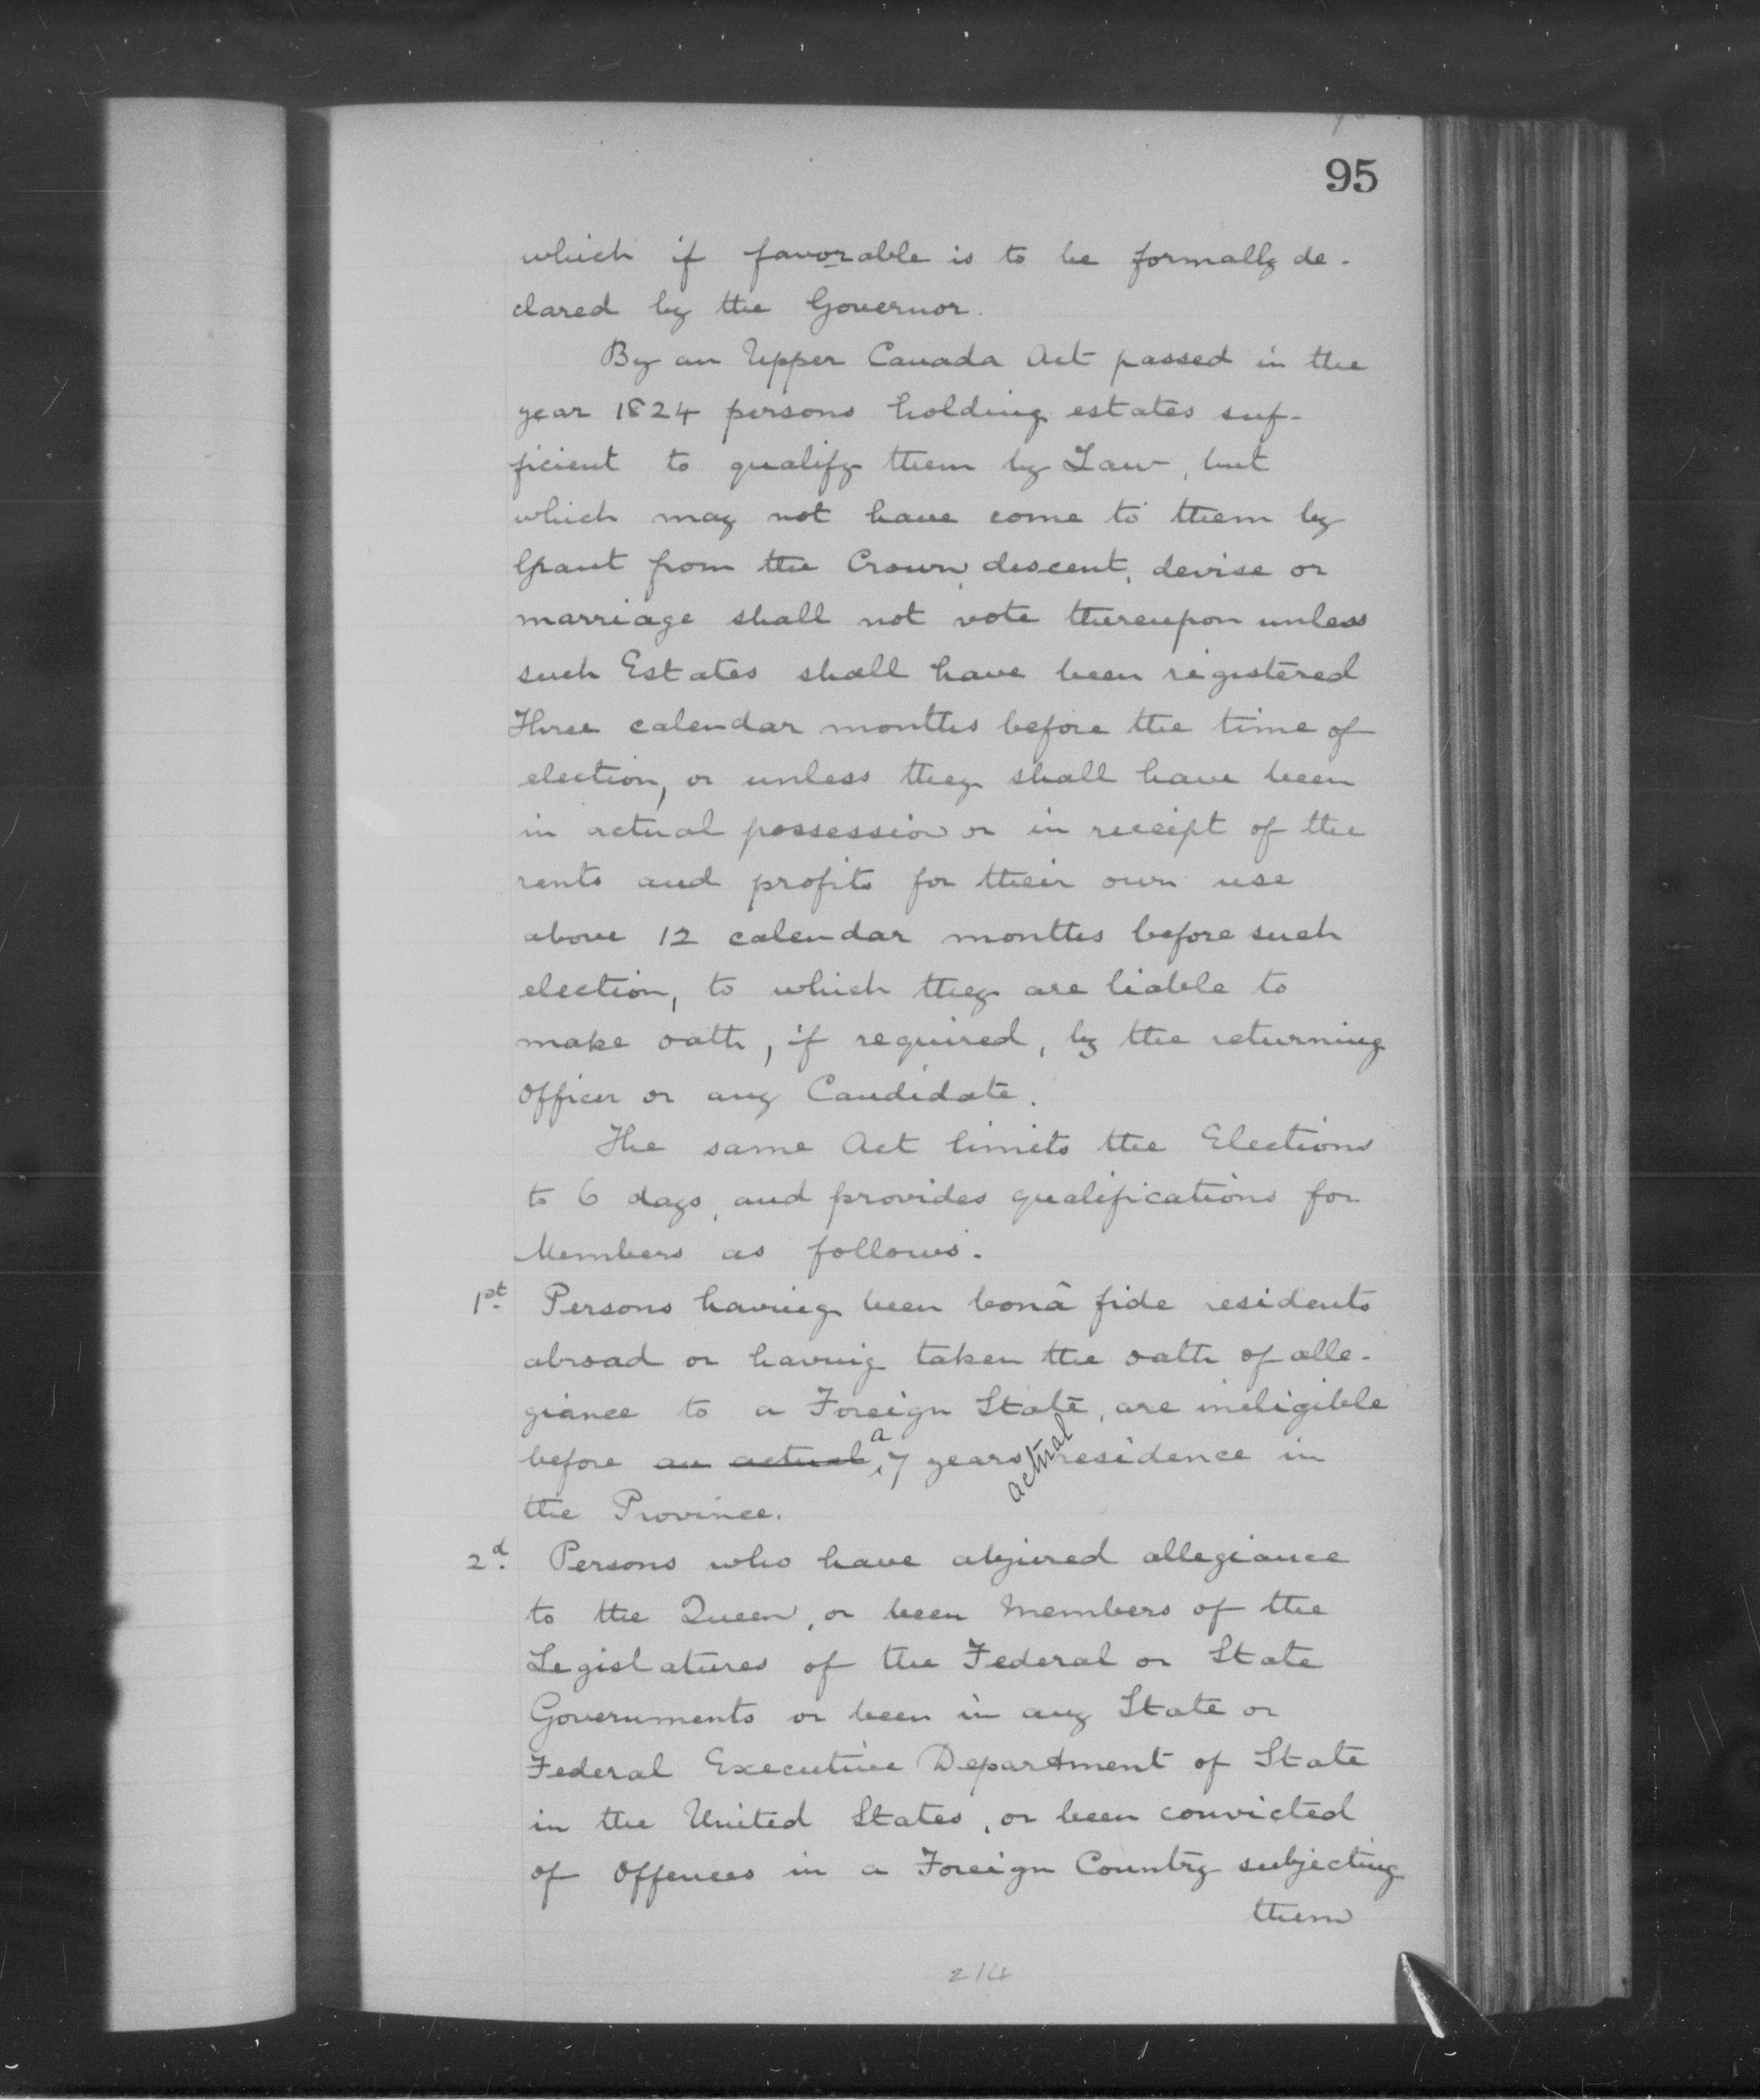 95
which if favorable is to be formally de-
clared by the Governor.
By an Upper Canada Act passed in the
year 1824 persons holding estates suf-
ficient to qualify them by Law, but
which may not have come to them by
Grant from the Crown, descent, devise or
marriage shall not vote thereupon unless
such Estates shall have been registered
Three calendar months before the time of
election, or unless they shall have been
in actual possession or in receipt of the
rents and profits for their own use
above 12 calendar months before such
election, to which they are liable to
make oath, if required, by the returning
Officer or any Candidate.
The same Act limits the Elections
to 6 days, and provides qualifications for
Members as follows.
1st Persons having been bonâ fide residents
abroad or having taken the oath of alle-
giance to a Foreign State, are ineligible
before an actual a 7 years actual residence in
the Province.
2d. Persons who have abjured allegiance
to the Queen, or been Members of the
Legislatures of the Federal or State
Governments or been in any State or
Federal Executive Department of State
in the United States, or been convicted
of Offences in a Foreign Country subjecting
them
214